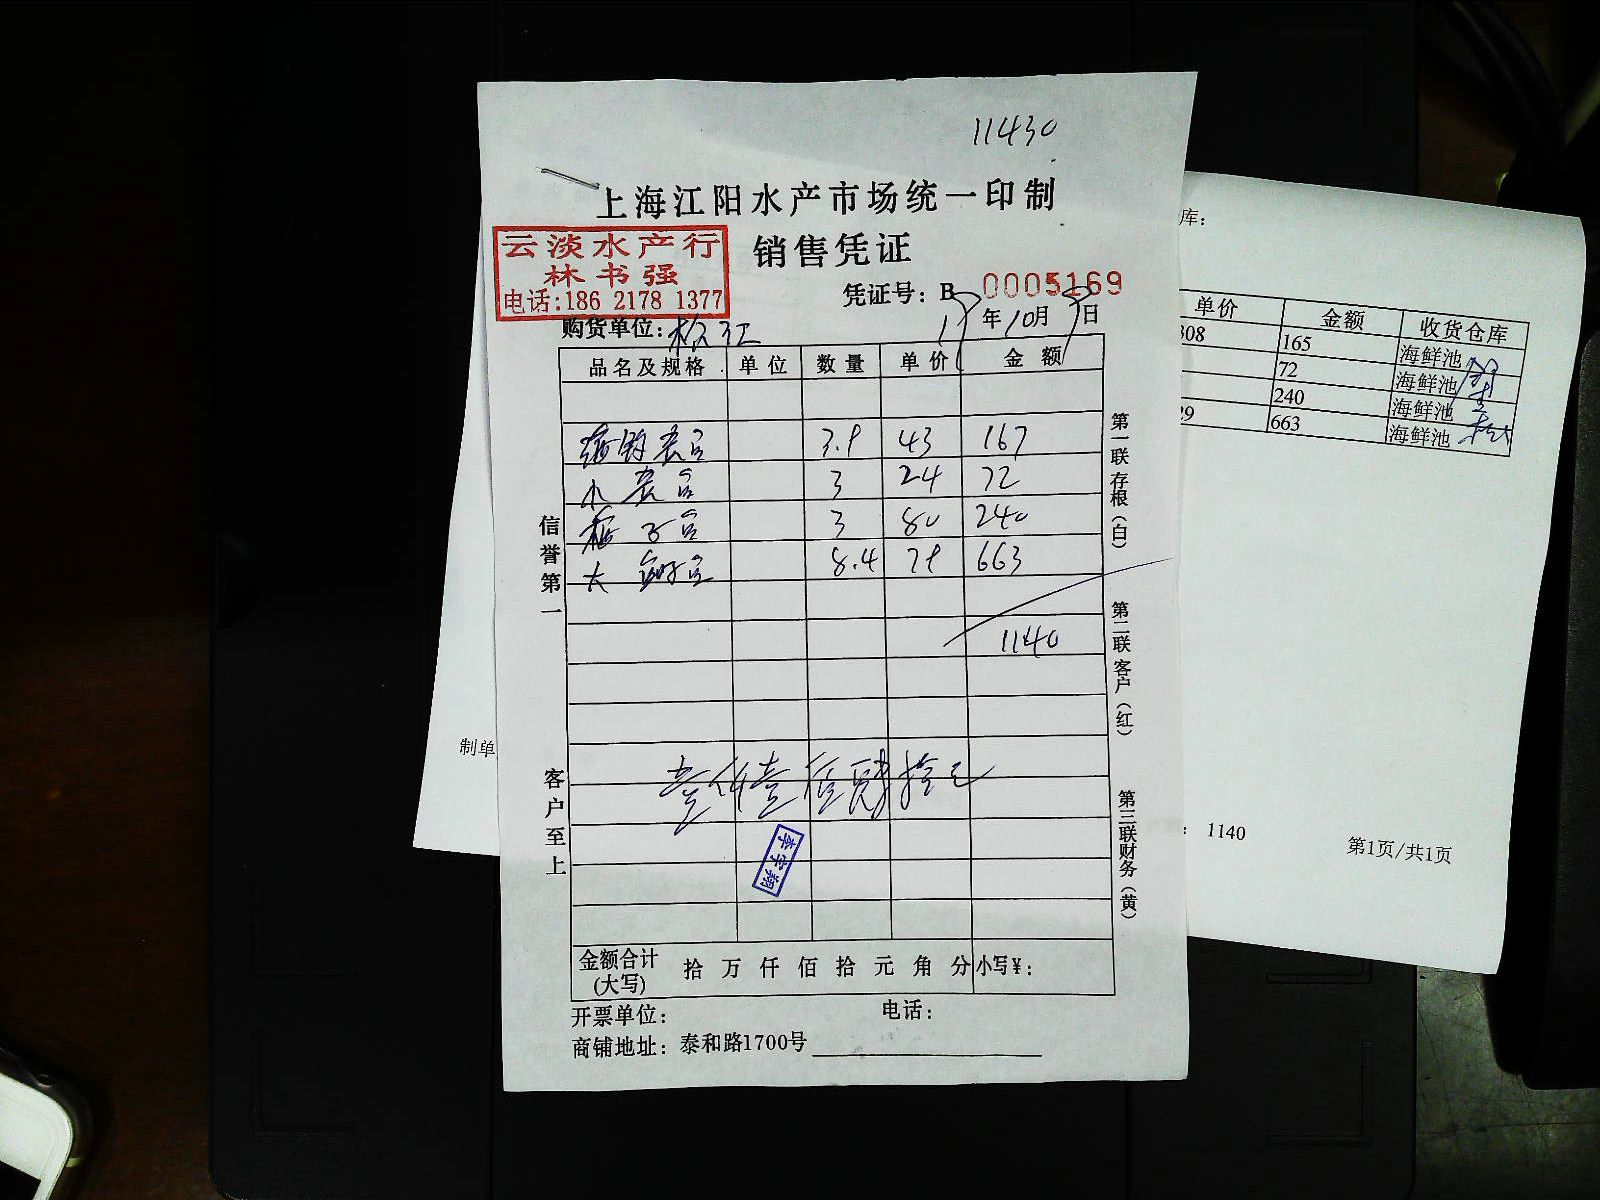 11430
上海江阳水产市场统一印制
云淡水产行
林书强
电话:186 2178 1377
销售凭证
凭证号: B 0005169
购货单位: 松江 年10月 日
品名及规格 单位 数量 单价 金额
3.9 43 167
小 3 24 72
3 80 240
大 8.4 79 663
1140
壹仟壹佰肆拾元
李宇翔
金额合计 (大写) 拾 万 仟 佰 拾 元 角 分 小写¥:
开票单位: 电话:
商铺地址: 泰和路1700号
信誉第一
客户至上
第一联存根(白)
第二联客户(红)
第三联财务(黄)
库:
单价 金额 收货仓库
308 165 海鲜池
72 海鲜池
240 海鲜池
29 663 海鲜池
制单
: 1140
第1页/共1页